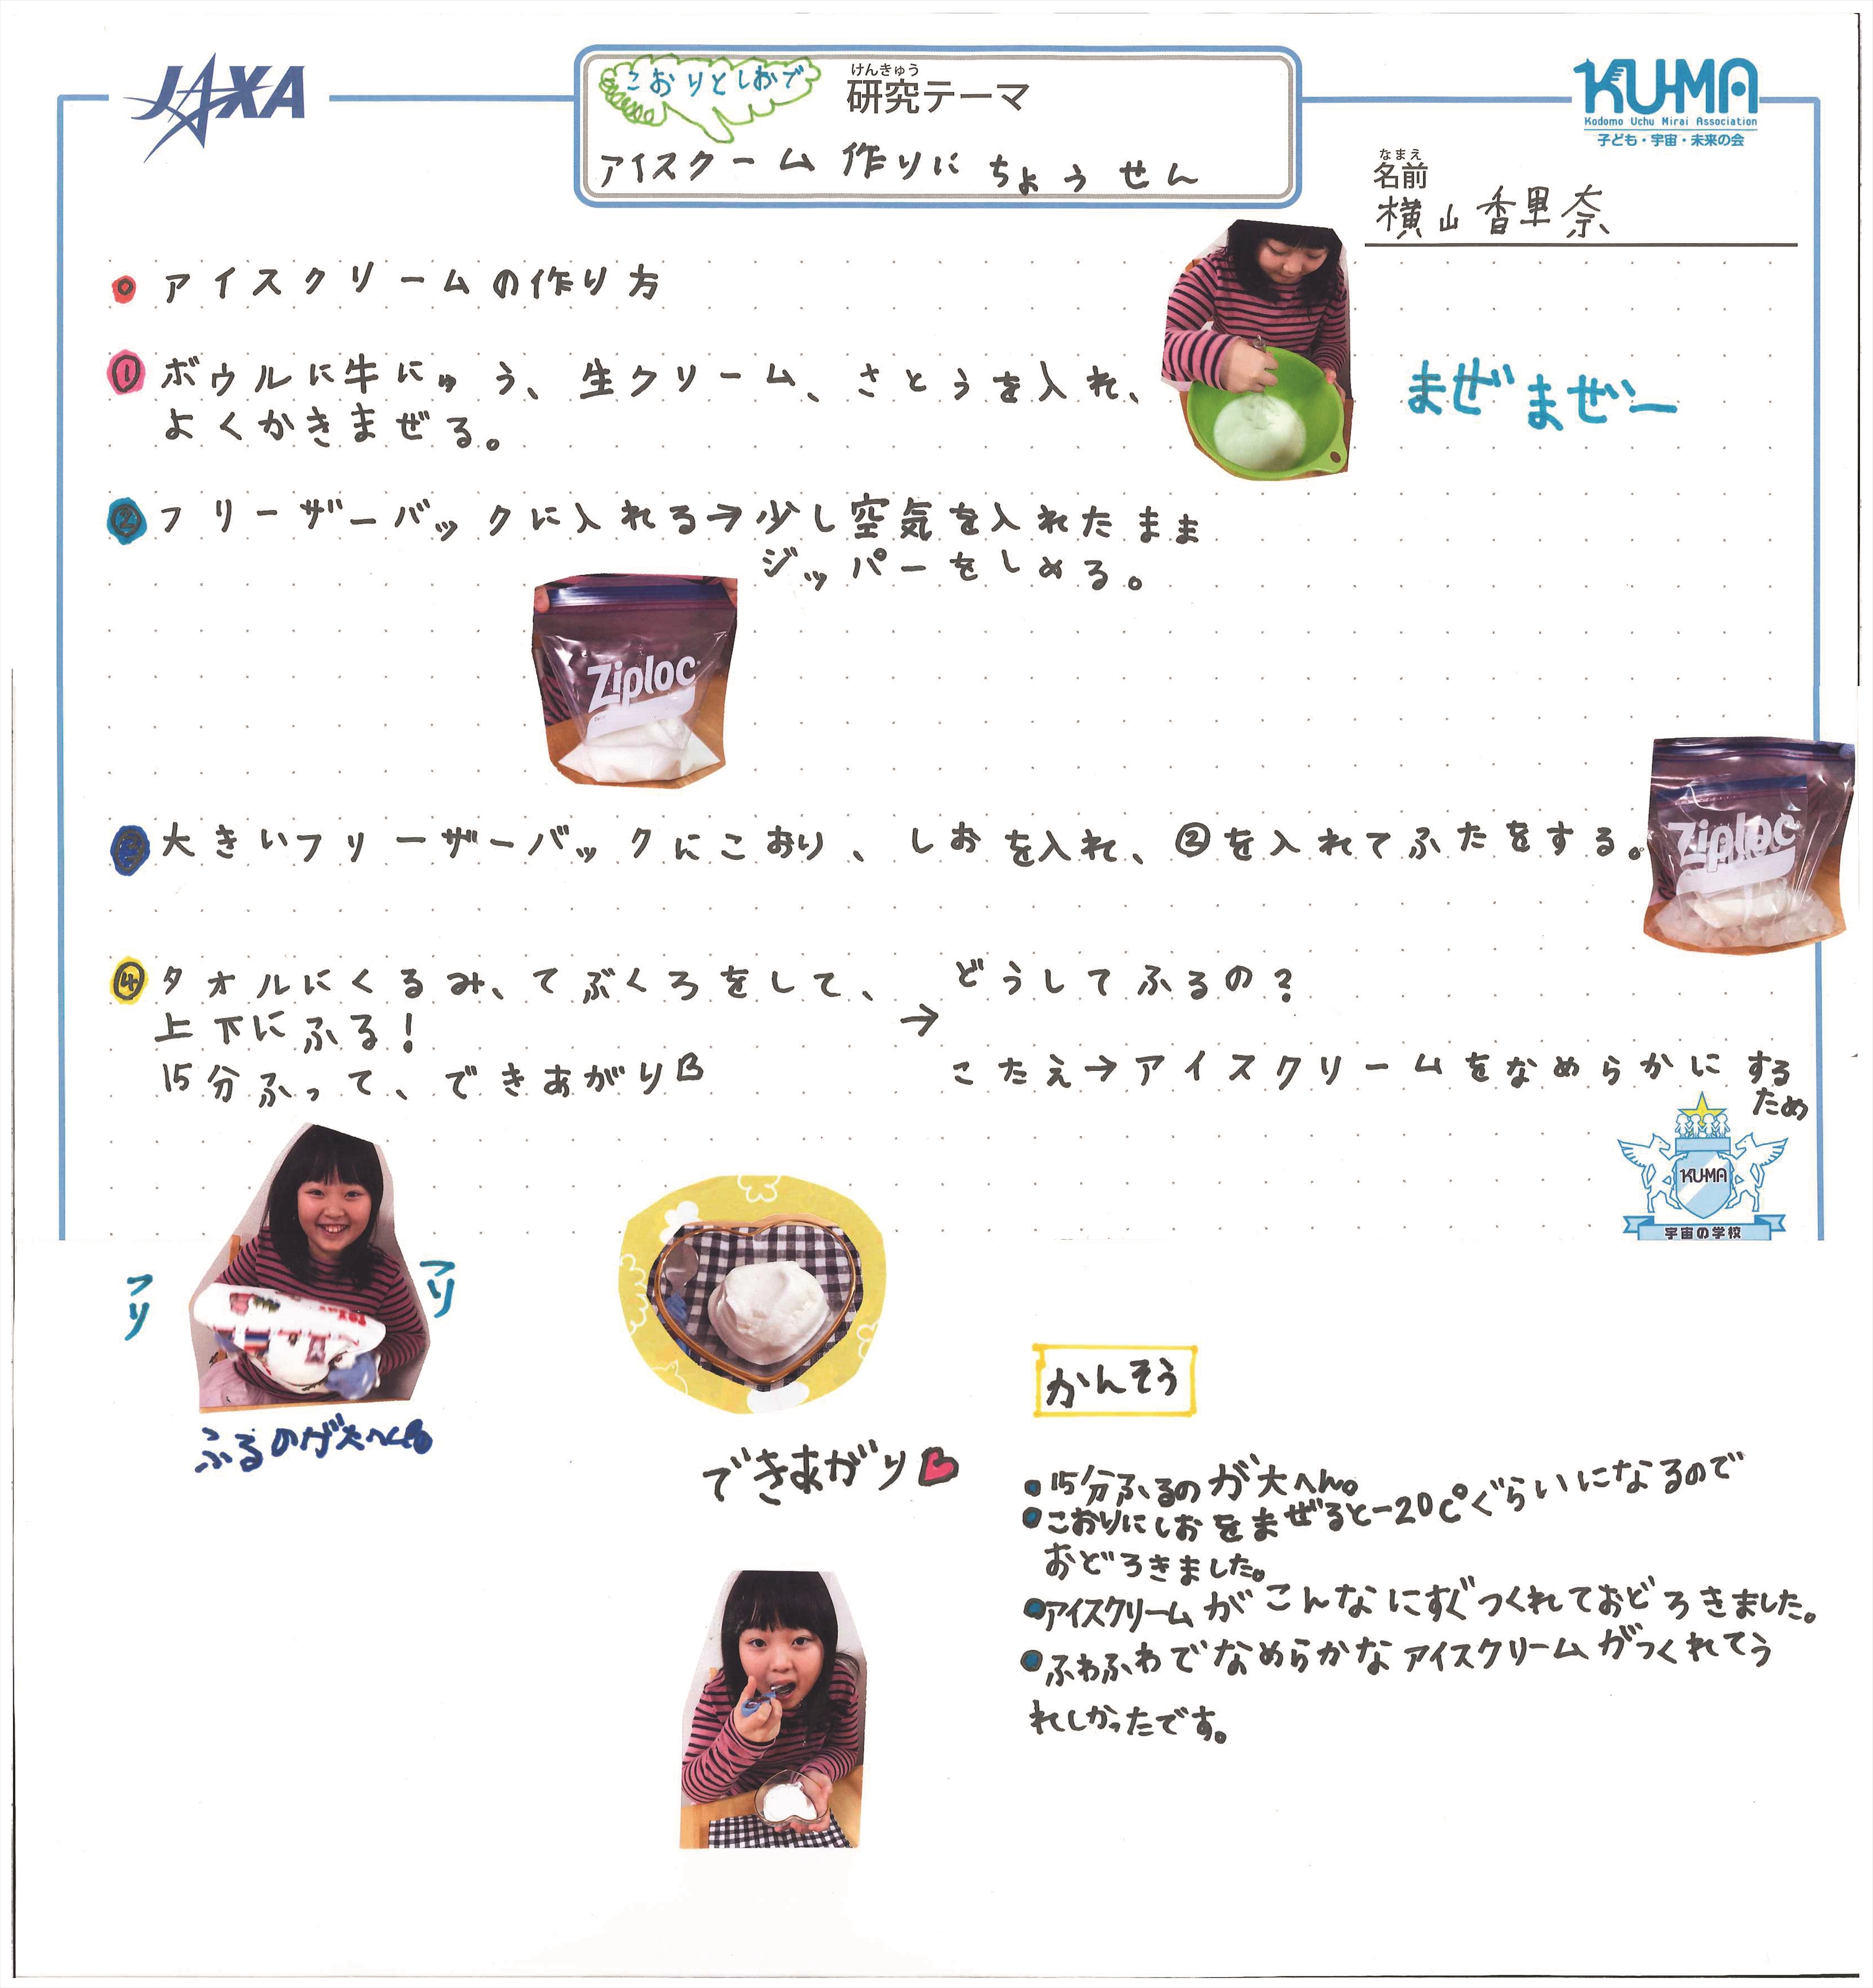 JAXA
こおりとしおで
けんきゅう
研究テーマ
アイスクーム作りにちょうせん
KU-MA
Kodomo Uchu Mirai Association
子ども・宇宙・未来の会
なまえ
名前
横山香里奈
アイスクリームの作り方
① ボウルに牛にゅう、生クリーム、さとうを入れ、
よくかきまぜる。
まぜまぜー
② フリーザーバックに入れる→少し空気を入れたまま
ジッパーをしめる。
Ziploc
③ 大きいフリーザーバックにこおり、しおを入れ、②を入れてふたをする。
Ziploc
④ タオルにくるみ、てぶくろをして、
上下にふる!
15分ふって、できあがり
→ どうしてふるの?
こたえ→アイスクリームをなめらかにする
ため
KU-MA
宇宙の学校
フリ
フリ
ふるのが大へん
できあがり
かんそう
・15分ふるのが大へん。
・こおりにしおをまぜると-20C°ぐらいになるので
おどろきました。
・アイスクリームがこんなにすぐつくれておどろきました。
・ふわふわでなめらかなアイスクリームがつくれてう
れしかったです。